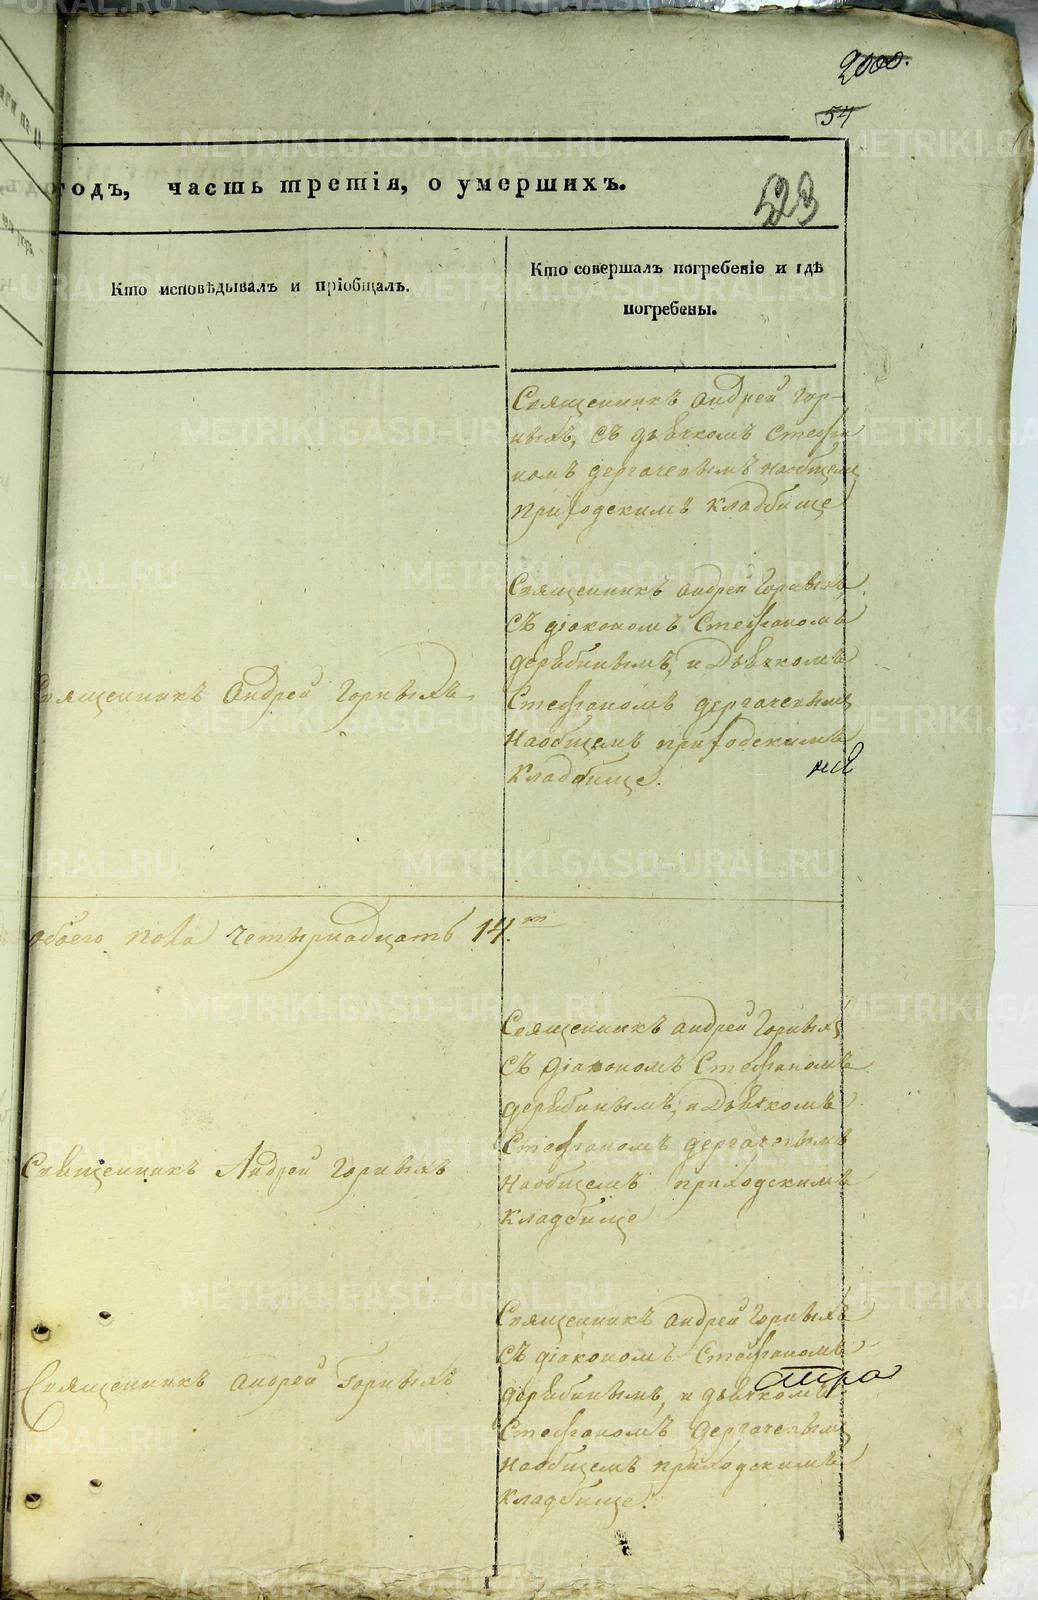 2000.
54
годъ, часть третія, о умершихъ.
523
Кто исповѣдывалъ и пріобщалъ.
Кто совершалъ погребеніе и гдѣ
погребены.
Священникъ Андрей Гор-
ныхъ, съ дьячкомъ Стефа
номъ Дергачевымъ наобщем
приходскимъ кладбище
Священникъ Андрей Горныхъ
съ діакономъ Стефаномъ
Дерябинымъ, и Дьячкомъ
Стефаномъ Дергачевымъ
наобщемъ приходскимъ
кладбище.
Священникъ Андрей Горныхъ
обоего пола четырнадцать 14.
Священникъ Андрей Горныхъ
съ діакономъ Стефаномъ
Дерябинымъ, и Дьячкомъ
Стефаномъ Дергачевымъ
наобщемъ приходскимъ
кладбище
Священникъ Андрей Горныхъ
Священникъ Андрей Горныхъ
съ діакономъ Стефаномъ
Дерябинымъ, и дьячкомъ
Стефаномъ Дергачевымъ
наобщемъ приходскимъ
кладбище.
Священникъ Андрей Горныхъ
METRIKI.GASO-URAL.RU